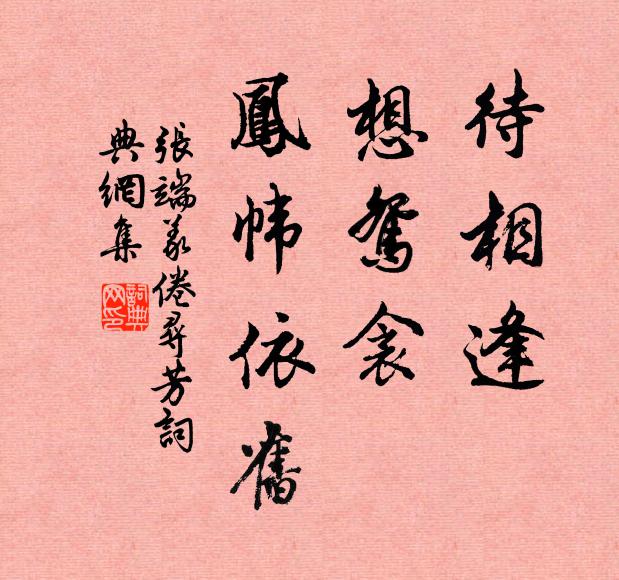 待相逢
想鴛衾
鳳幃依舊
張端義倦尋芳詞
典網集
詞典網印